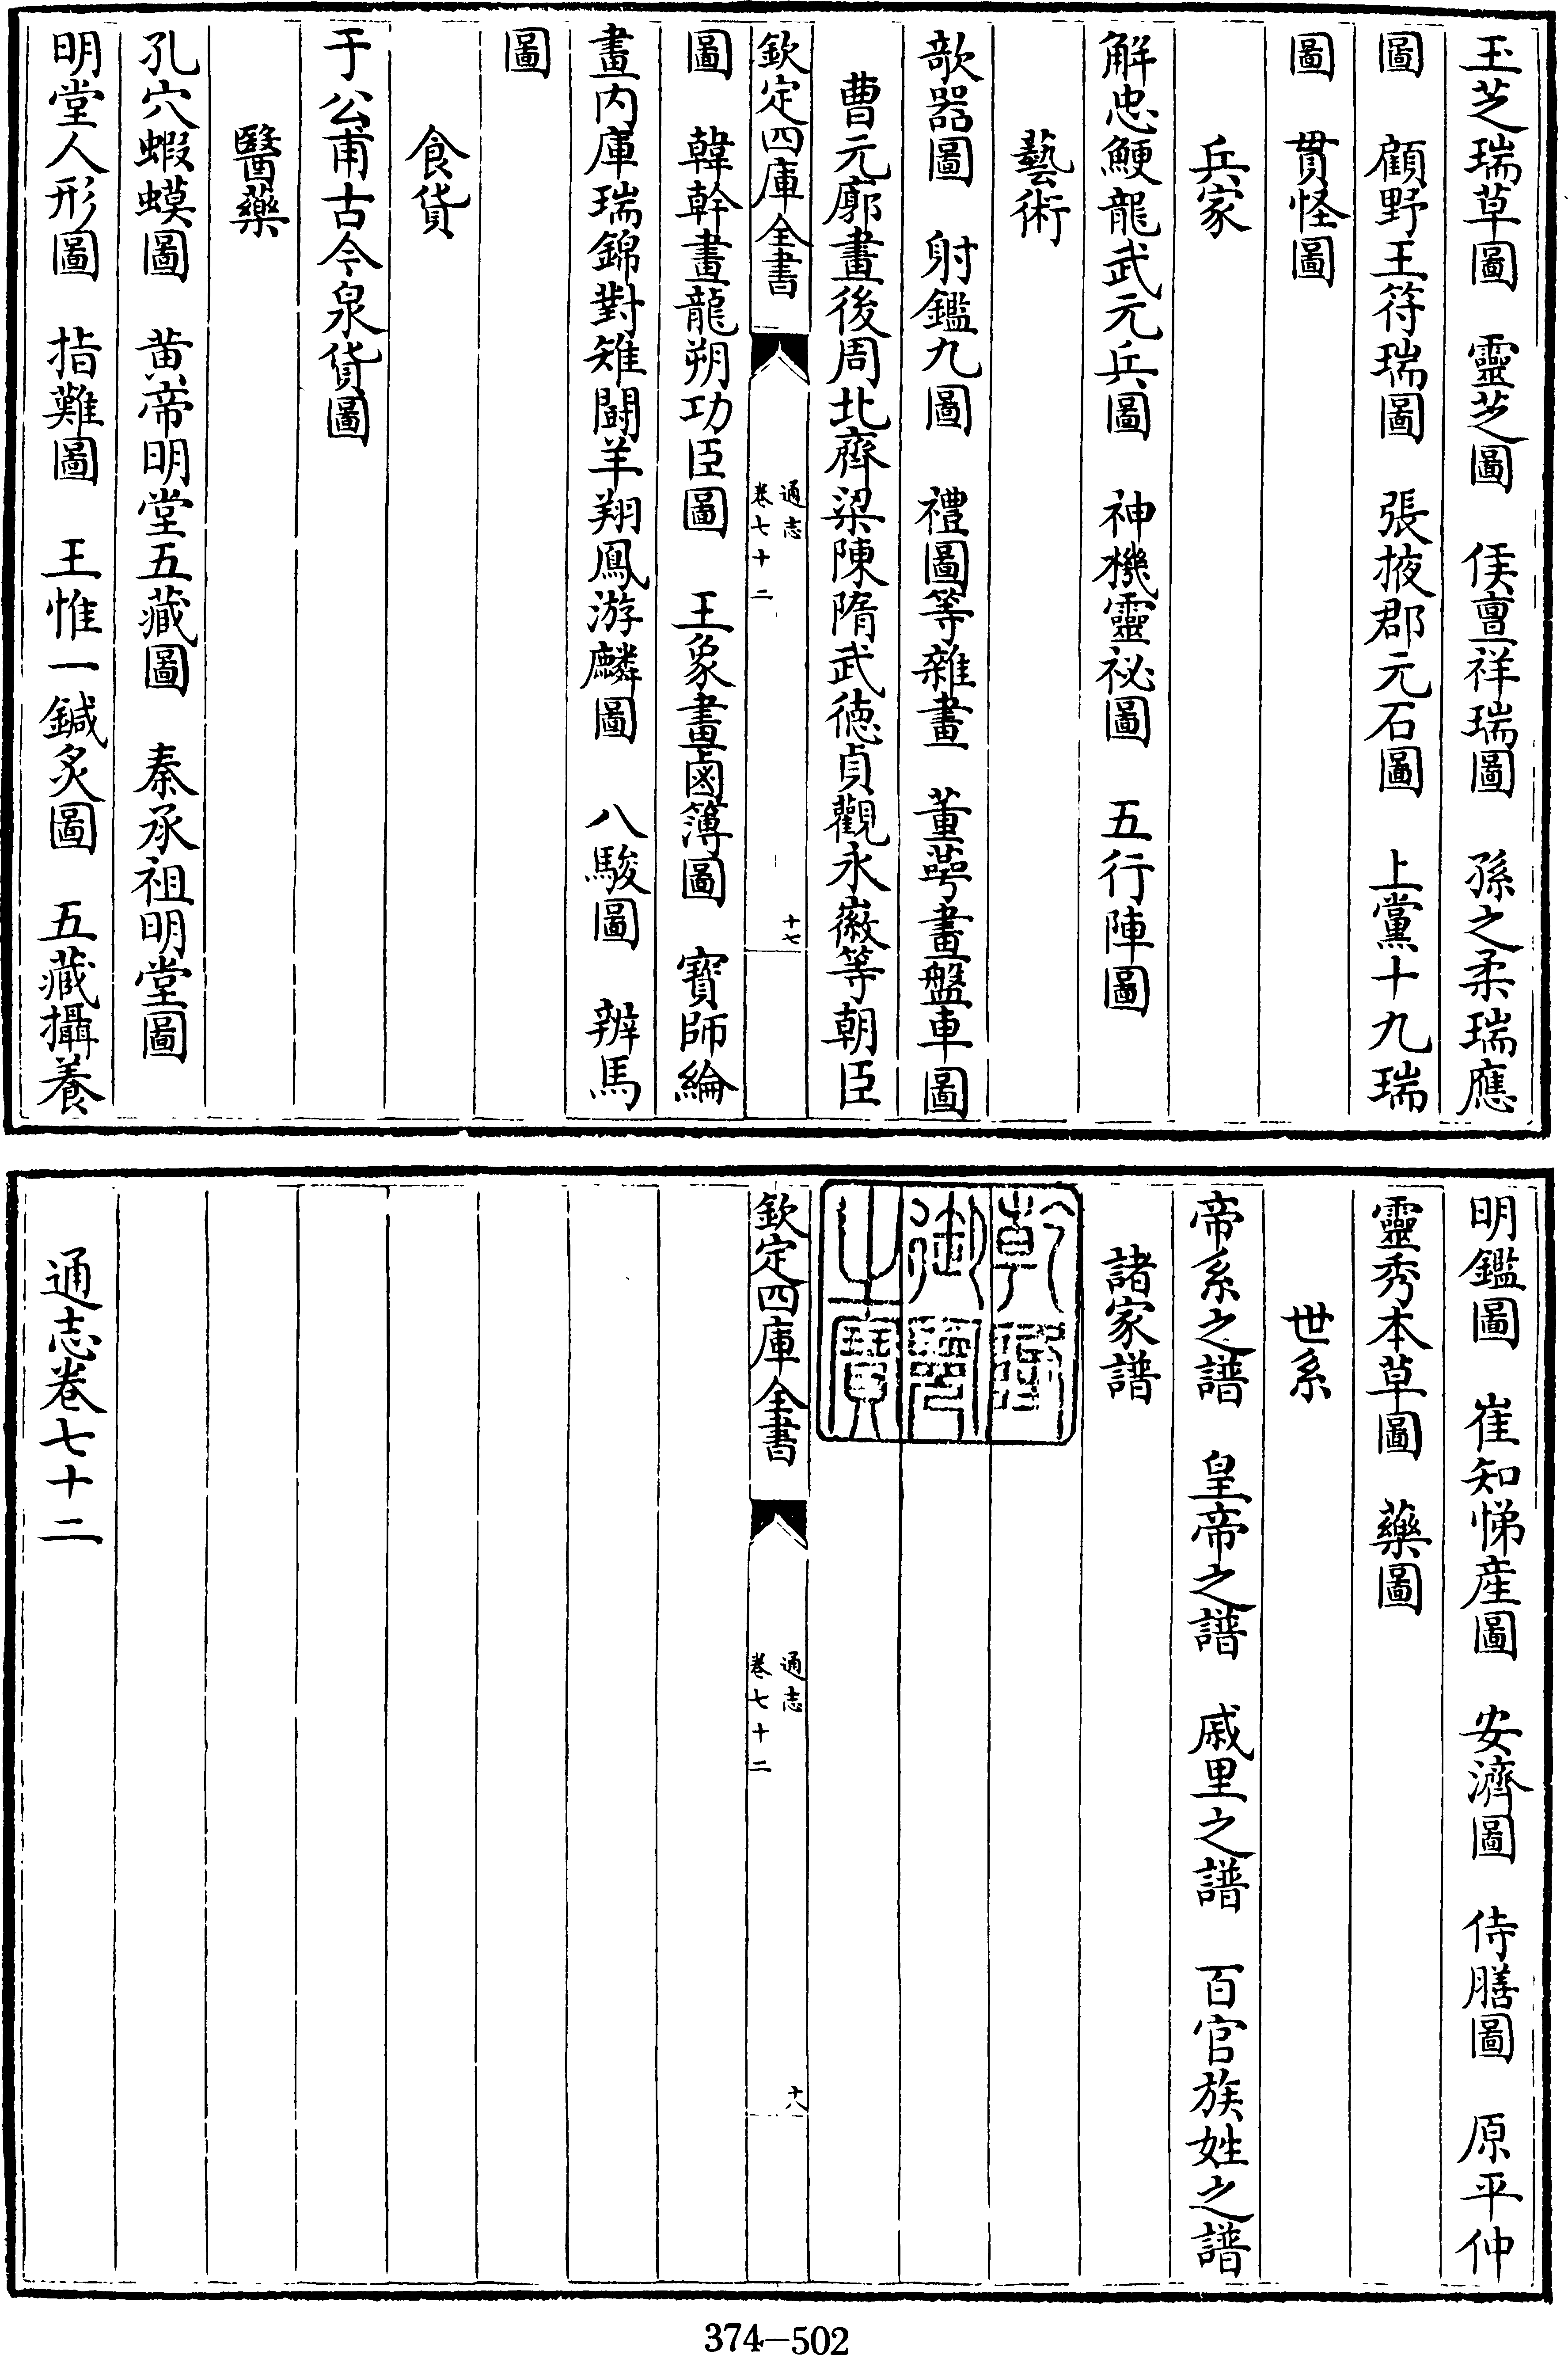 玉芝瑞草圖　靈芝圖　侯亶祥瑞圖　孫之柔瑞應
圖　顧野王符瑞圖　張掖郡元石圖　上黨十九瑞
圖　貫怪圖
兵家
解忠鯁龍武元兵圖　神機靈祕圖　五行陣圖
藝術
欹器圖　射鑑九圖　禮圖等雜畫　董萼畫盤車圖
曹元廓畫後周北齊梁陳隋武徳貞觀永徽等朝臣
欽定四庫全書
通志
卷七十二
十七
圖　韓幹畫龍朔功臣圖　王象畫鹵簿圖　寳師綸
畫内庫瑞錦對雉鬪羊翔鳳游麟圖　八駿圖　辨馬
圖
食貨
于公甫古今泉貨圖
醫藥
孔穴蝦蟆圖　黄帝明堂五藏圖　秦承祖明堂圖
明堂人形圖　指難圖　王惟一鍼炙圖　五藏攝養
明鑑圖　崔知悌産圖　安濟圖　侍膳圖　原平仲
靈秀本草圖　藥圖
世系
帝系之譜　皇帝之譜　戚里之譜　百官族姓之譜
諸家譜
乾隆
御覽
之寶
欽定四庫全書
通志
卷七十二
十八
通志卷七十二
374-502